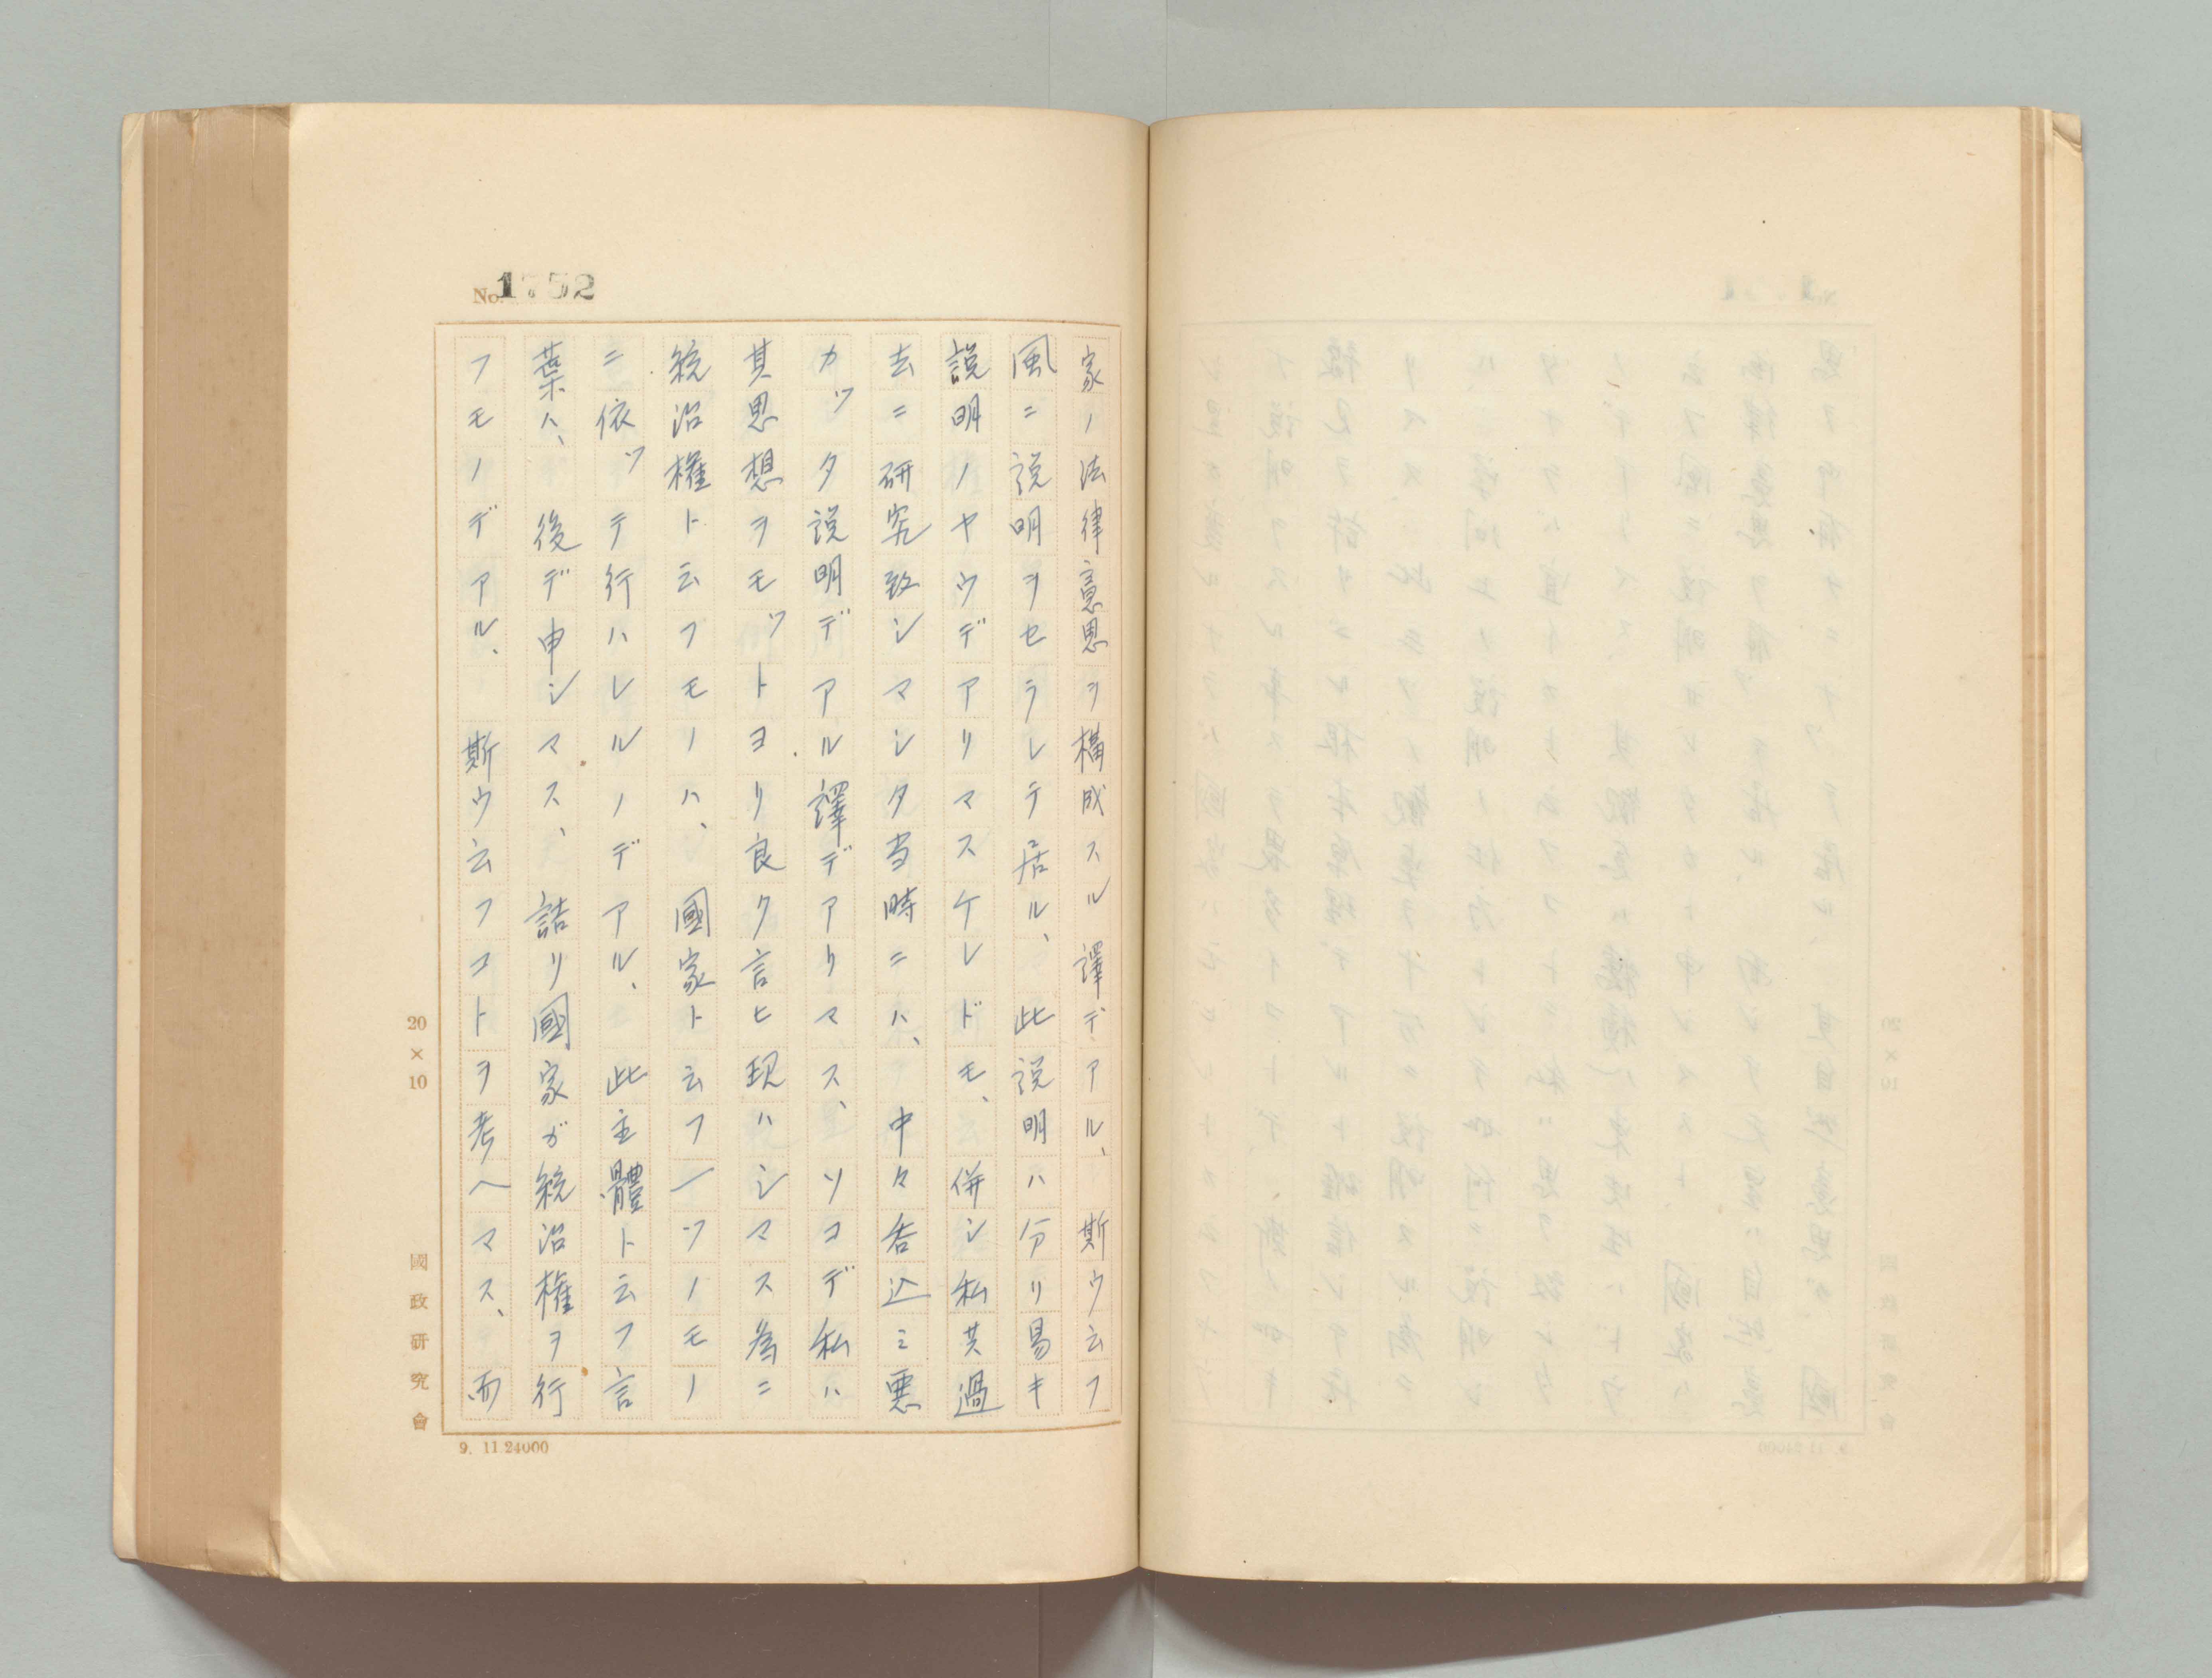 No. 1752
家ノ法律意思ヲ構成スル譯デアル、斯ウ云フ
風ニ説明ヲセラレテ居ル、此説明ハ分リ易キ
説明ノヤウデアリマスケレドモ、併シ私共過
去ニ研究致シマシタ当時ニハ、中々呑込ミ悪
カッタ説明デアル譯デアリマス、ソコデ私ハ
其思想ヲモットヨリ良ク言ヒ現ハシマス為ニ
統治權ト云フモノハ、國家ト云フ一ツノモノ
ニ依ッテ行ハレルノデアル、此主體ト云フ言
葉ハ、後デ申シマス、詰リ國家ガ統治権ヲ行
フモノデアル、斯ウ云フコトヲ考ヘマス、而
20×10
國政研究會
9. 11 24000